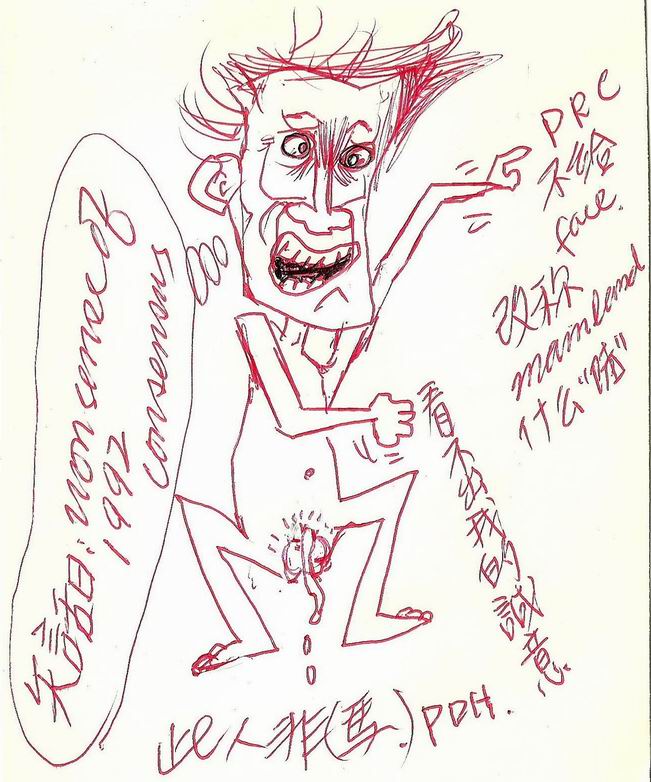 nonsence of
1992
consensus
PRC
不给
face.
改称
mainland
什么"陆"
看不出我的誠意.
此人非(馬.) PDH.